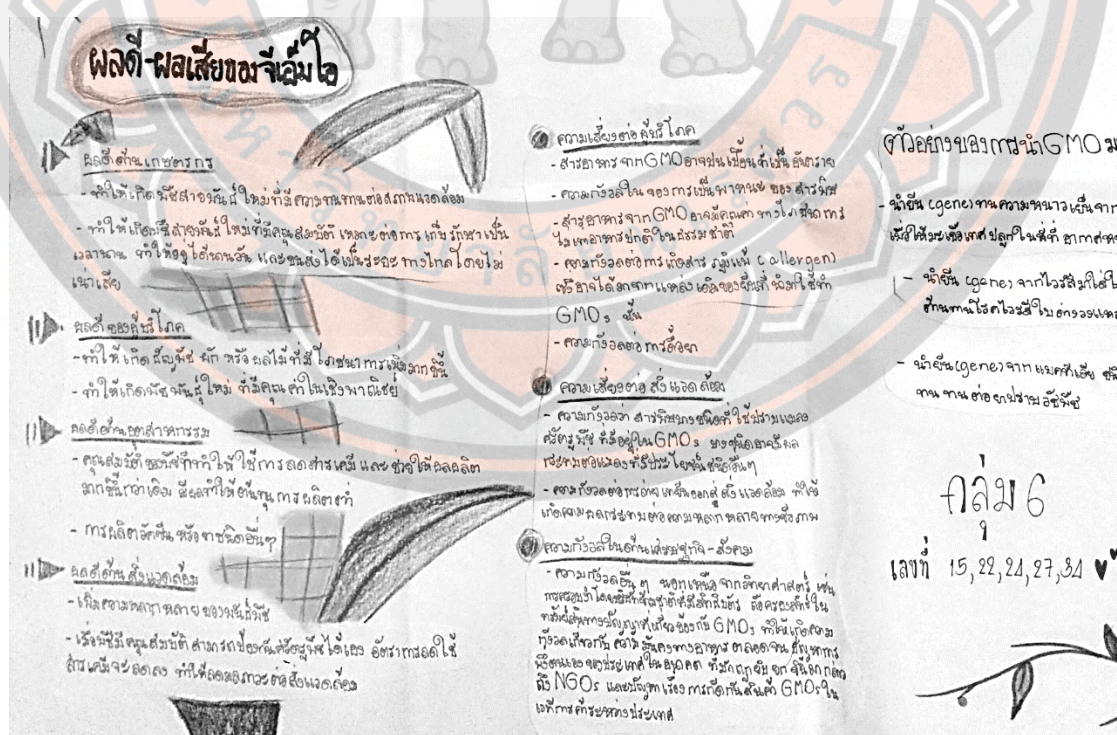 ผลดี-ผลเสียของจีเอ็มโอ
ผลดีด้านเกษตรกร
- ทำให้เกิดพืชสายพันธุ์ใหม่ที่มีความทนทานต่อสภาพแวดล้อม
- ทำให้เกิดพืชสายพันธุ์ใหม่ที่มีคุณสมบัติ เหมาะต่อการเก็บรักษาเป็น
เวลานาน ทำให้อยู่ได้นานวัน และขนส่งได้เป็นระยะทางไกลโดยไม่
เน่าเสีย
ผลดีของผู้บริโภค
- ทำให้เกิดธัญพืช ผัก หรือผลไม้ที่มีโภชนาการเพิ่มมากขึ้น
- ทำให้เกิดพืชพันธุ์ใหม่ ที่มีคุณค่าในเชิงพาณิชย์
ผลดีด้านอุตสาหกรรม
- คุณสมบัติของพืชที่ทำให้ใช้การลดสารเคมี และช่วยให้ผลผลิต
มากขึ้นกว่าเดิม มีผลทำให้ต้นทุนการผลิตต่ำ
- การผลิตวัคซีน หรือยาชนิดอื่นๆ
ผลดีด้านสิ่งแวดล้อม
- เพิ่มความหลากหลายของพันธุ์พืช
- เมื่อพืชมีคุณสมบัติสามารถป้องกันศัตรูพืชได้เอง อัตราการลดใช้
สารเคมีจะลดลง ทำให้ลดมลภาวะต่อสิ่งแวดล้อม
ความเสี่ยงต่อผู้บริโภค
- สารอาหารจาก GMO อาจปนเปื้อนที่เป็นอันตราย
- ความกังวลในของการเป็นพาหนะของสารพิษ
- สารอาหารจาก GMO อาจมีคุณค่าทางโภชนาการ
ไม่เท่าอาหารปกติในธรรมชาติ
- ความกังวลต่อการเกิดสารภูมิแพ้ (allergen)
ซึ่งอาจได้มาจากแหล่งเดิมของยีนที่นำมาใช้ทำ
GMOs นั้น
- ความกังวลต่อการดื้อยา
ความเสี่ยงต่อสิ่งแวดล้อม
- ความกังวลว่า สารพิษบางชนิดที่ใช้ปราบแมลง
ศัตรูพืช ที่มีอยู่ใน GMOs บางชนิดอาจมีผล
กระทบต่อแมลงที่มีประโยชน์ชนิดอื่นๆ
- ความกังวลต่อการถ่ายเทยีนออกสู่สิ่งแวดล้อม ทำให้
เกิดความผลกระทบต่อความหลากหลายทางชีวภาพ
ความกังวลในด้านเศรษฐกิจ-สังคม
- ความกังวลอื่นๆ นอกเหนือจากวิทยาศาสตร์ เช่น
การครอบงำโดยบริษัทข้ามชาติที่มีสิทธิบัตร ถือครองสิทธิ์ใน
ทรัพย์สินทางปัญญาที่เกี่ยวข้องกับ GMOs ทำให้เกิดความ
กังวลเกี่ยวกับความมั่นคงทางอาหาร ตลอดจนปัญหาการ
พึ่งตนเองของประเทศในอนาคต ที่มักถูกหยิบยกขึ้นมากล่าว
ถึง NGOs และปัญหาเรื่องการกีดกันสินค้า GMOs ใน
เวทีการค้าระหว่างประเทศ
ตัวอย่างของการนำ GMO ม
- นำยีน (gene) ทนความหนาวเย็นจาก
เพื่อให้มะเขือเทศปลูกในที่ที่อากาศหน
- นำยีน (gene) จากไวรัสมาใส่ใ
ต้านทานโรคไวรัสใบด่างวงแห
- นำยีน (gene) จากแบคทีเรีย ชนิ
ทนทานต่อยาปราบวัชพืช
กลุ่ม 6
เลขที่ 15,22,24,27,34